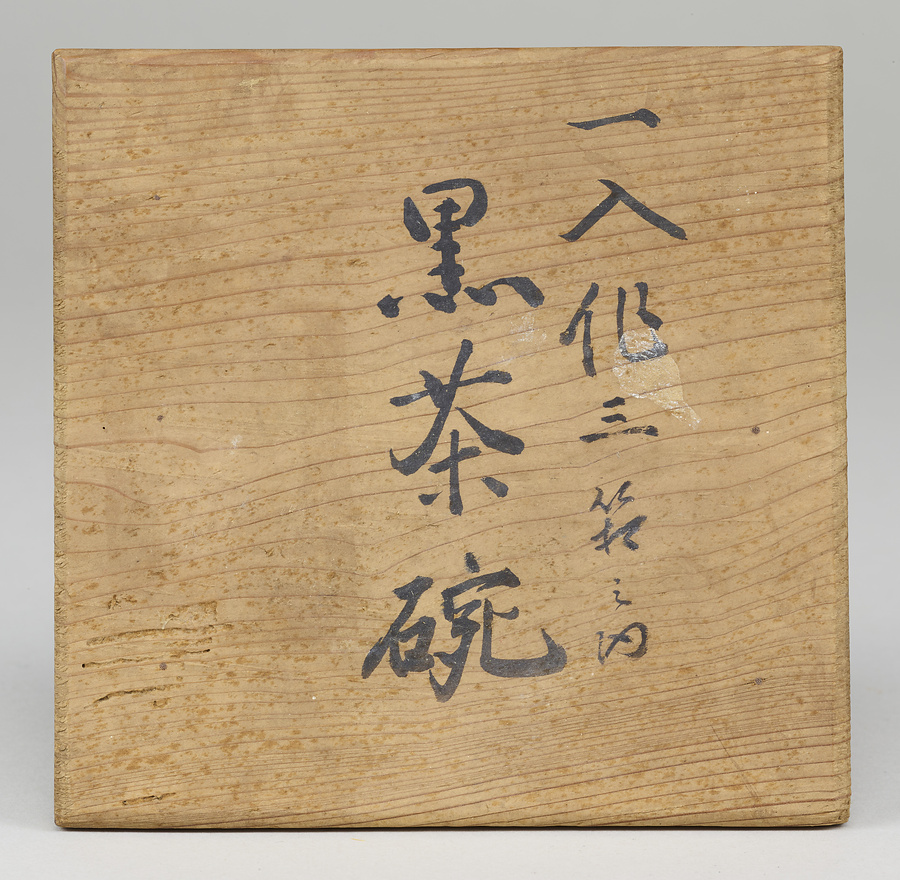 一入作三箱之内
黒茶碗